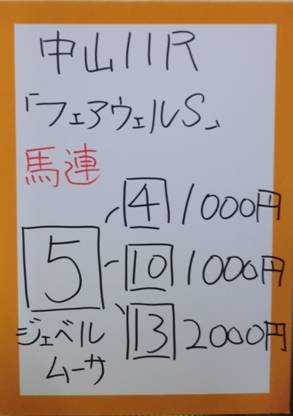 中山11R
「フェアウェルS」
馬連
4 1000円
5 10 1000円
13 2000円
ジェベル
ムーサ